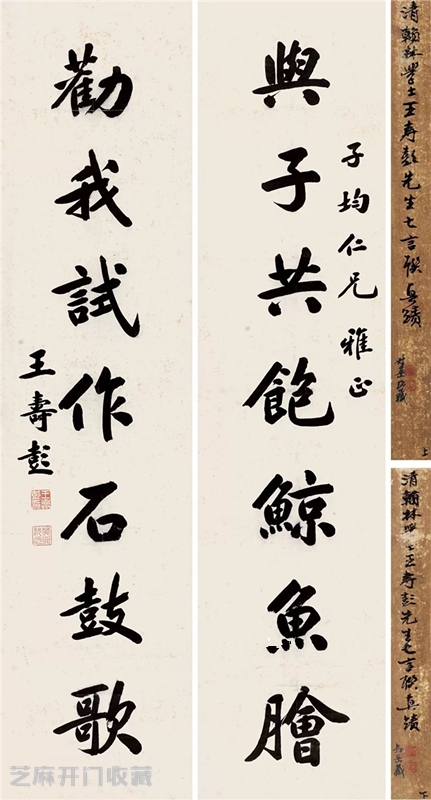 與子共飽鯨魚膾
子均仁兄雅正
勸我試作石鼓歌
王壽彭
清翰林學士王寿彭先生七言联真蹟
上
清翰林學士王寿彭先生七言联真蹟
下
芝麻开门收藏